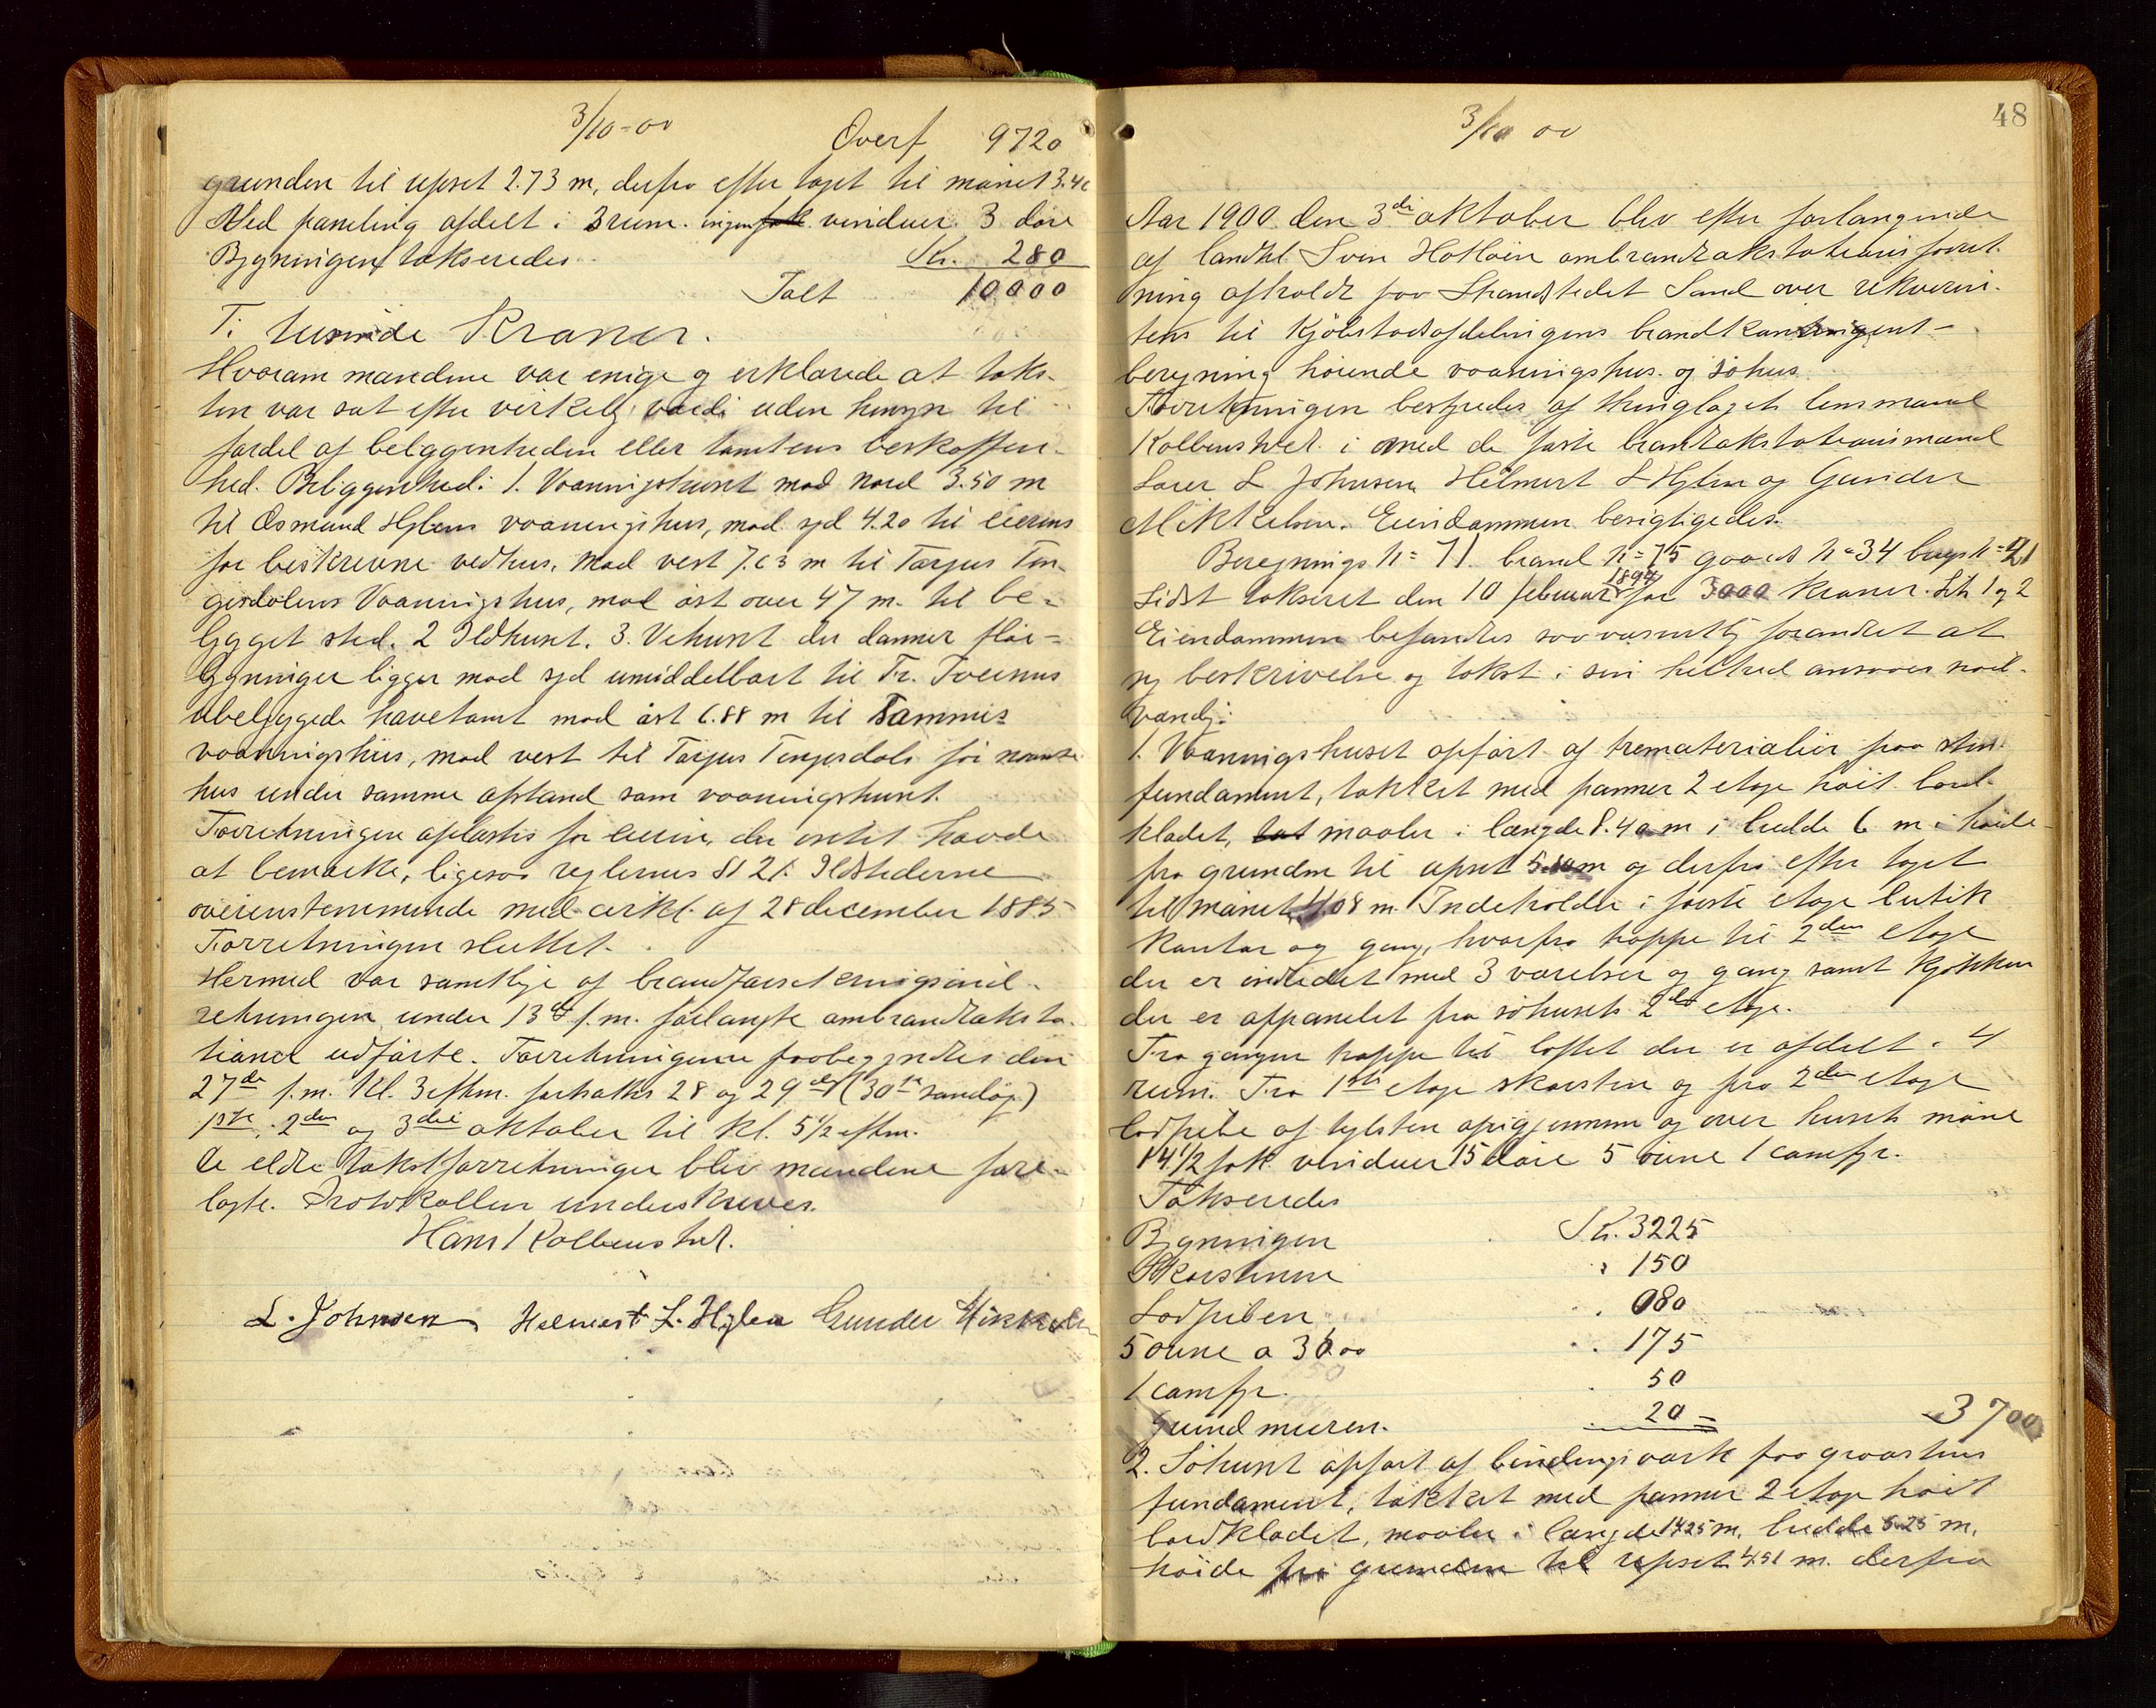 3/10-00
Overf 9720
grunden til upset 2.73 m, derfra efter taget til mønet 3.4
Med paneling afdelt i 3 rum. ingen vinduer 3 døre
Bygningen takseredes Kr. 280
Ialt 10000
Ti tusinde Kroner.
Hvorom mændene var enige og erklærede at taks-
ten var sat efter virkelig værdi uden hensyn til
fordel af beliggenheden eller tomtens beskaffen-
hed. Beliggenhed: 1. Vaaningshuset mod nord 3.50 m
til Osmund Hylens vaaningshus, mod syd 4.20 til eierens
før beskrevne vedhus, mod vest 7.63 m til Tarjus Ten-
gesdalens Vaaningshus, mod øst over 47 m. til be-
bygget sted. 2 Ildhuset. 3. Vehuset der danner fløi-
bygninger ligger mod syd umiddelbart til Fr. Iversens
ubebyggede havetomt mod øst 6.88 m til Sammes
vaaningshus, mod vest til Tarjus Tengesdals før nævnte
hus under samme afstand som vaaningshuset.
Forretningen oplæstes for eieren, der intet havde
at bemærke, ligesaa reglernes § 21. Ildstederne
overensstemmende med cirkl. af 28 december 1885
Forretningen sluttet.
Hermed var samtlige af brandforsikringsind-
retningen under 13de f.m. forlangte ombrandtaksta-
tioner udførte. Forretningerne paabegyndtes den
27de f.m. Kl. 3 efterm. fortsattes 28 og 29de (30te søndag)
1ste, 2den og 3die oktober til kl. 5 1/2 efterm.
De eldre takstforretninger blev mændene fore-
lagte. Protokollen underskreves.
Hans Kolbenstvet.
L. Johnsen Helmert L. Hylen Gunder Mikkelsen
48
3/10 00
Aar 1900 den 3die oktober blev efter forlangende
af landhl. Sven Hotløin ombrandtakstationsforret-
ning afholdt paa Strandstedet Sand over rekviren-
tens til Kjøbstadsafdelingens brandkontingent-
beregning hørende vaaningshus og søhus.
Forretningen bestyredes af thinglagets lensmand
Kolbenstvet i med de faste brandtakstationsmænd
Lars L Johnsen, Helmert L Hylen og Gunder
Mikkelsen. Eiendommen besigtigedes.
Beregnings n= 71. brand n= 75 gaards n= 34 brugs n= 21
Sidst takseret den 10 februar 1894 for 3000 kroner. Lit 1 og 2
Eiendommen befandtes saa væsentlig forandret at
ny beskrivelse og takst i sin helhed ansaaes nød-
vendig:
1. Vaaningshuset opført af træmaterialier paa sten-
fundament, takket med panner 2 etage høit bord-
klædet, maaler i længde 8.40 m i bredde 6 m i høide
fra grunden til upset 5.10 m og derfra efter taget
til mønet 4.08 m. Indeholder i første etage butik
Kontor og gang, hvorfra trappe til 2den etage
der er indredet med 3 værelser og gang samt kjøkken
der er oppanelet fra søhusets 2den etage.
Fra gangen trappe til loftet der er afdelt i 4
rum. Fra 1ste etage skorsten og fra 2den etage
lodpibe af teglsten opigjennem og over husets møne
14 1/2 fok vinduer 15 døre 5 ovne 1 comfyr.
Takseredes
Bygningen Kr. 3225
Skorstenen " 150
Lodpiben " 080
5 ovne a 35.00 " 175
1 comfyr. " 50
Grundmuren. " 20 = 3700
2. Søhuset opført af bindingsværk paa graastens
fundament, takket med panner 2 etage høit
bordklædet, maaler i længde 14.25 m, bredde 5.25 m,
høide fra grunden til upset 4.51 m. derfra